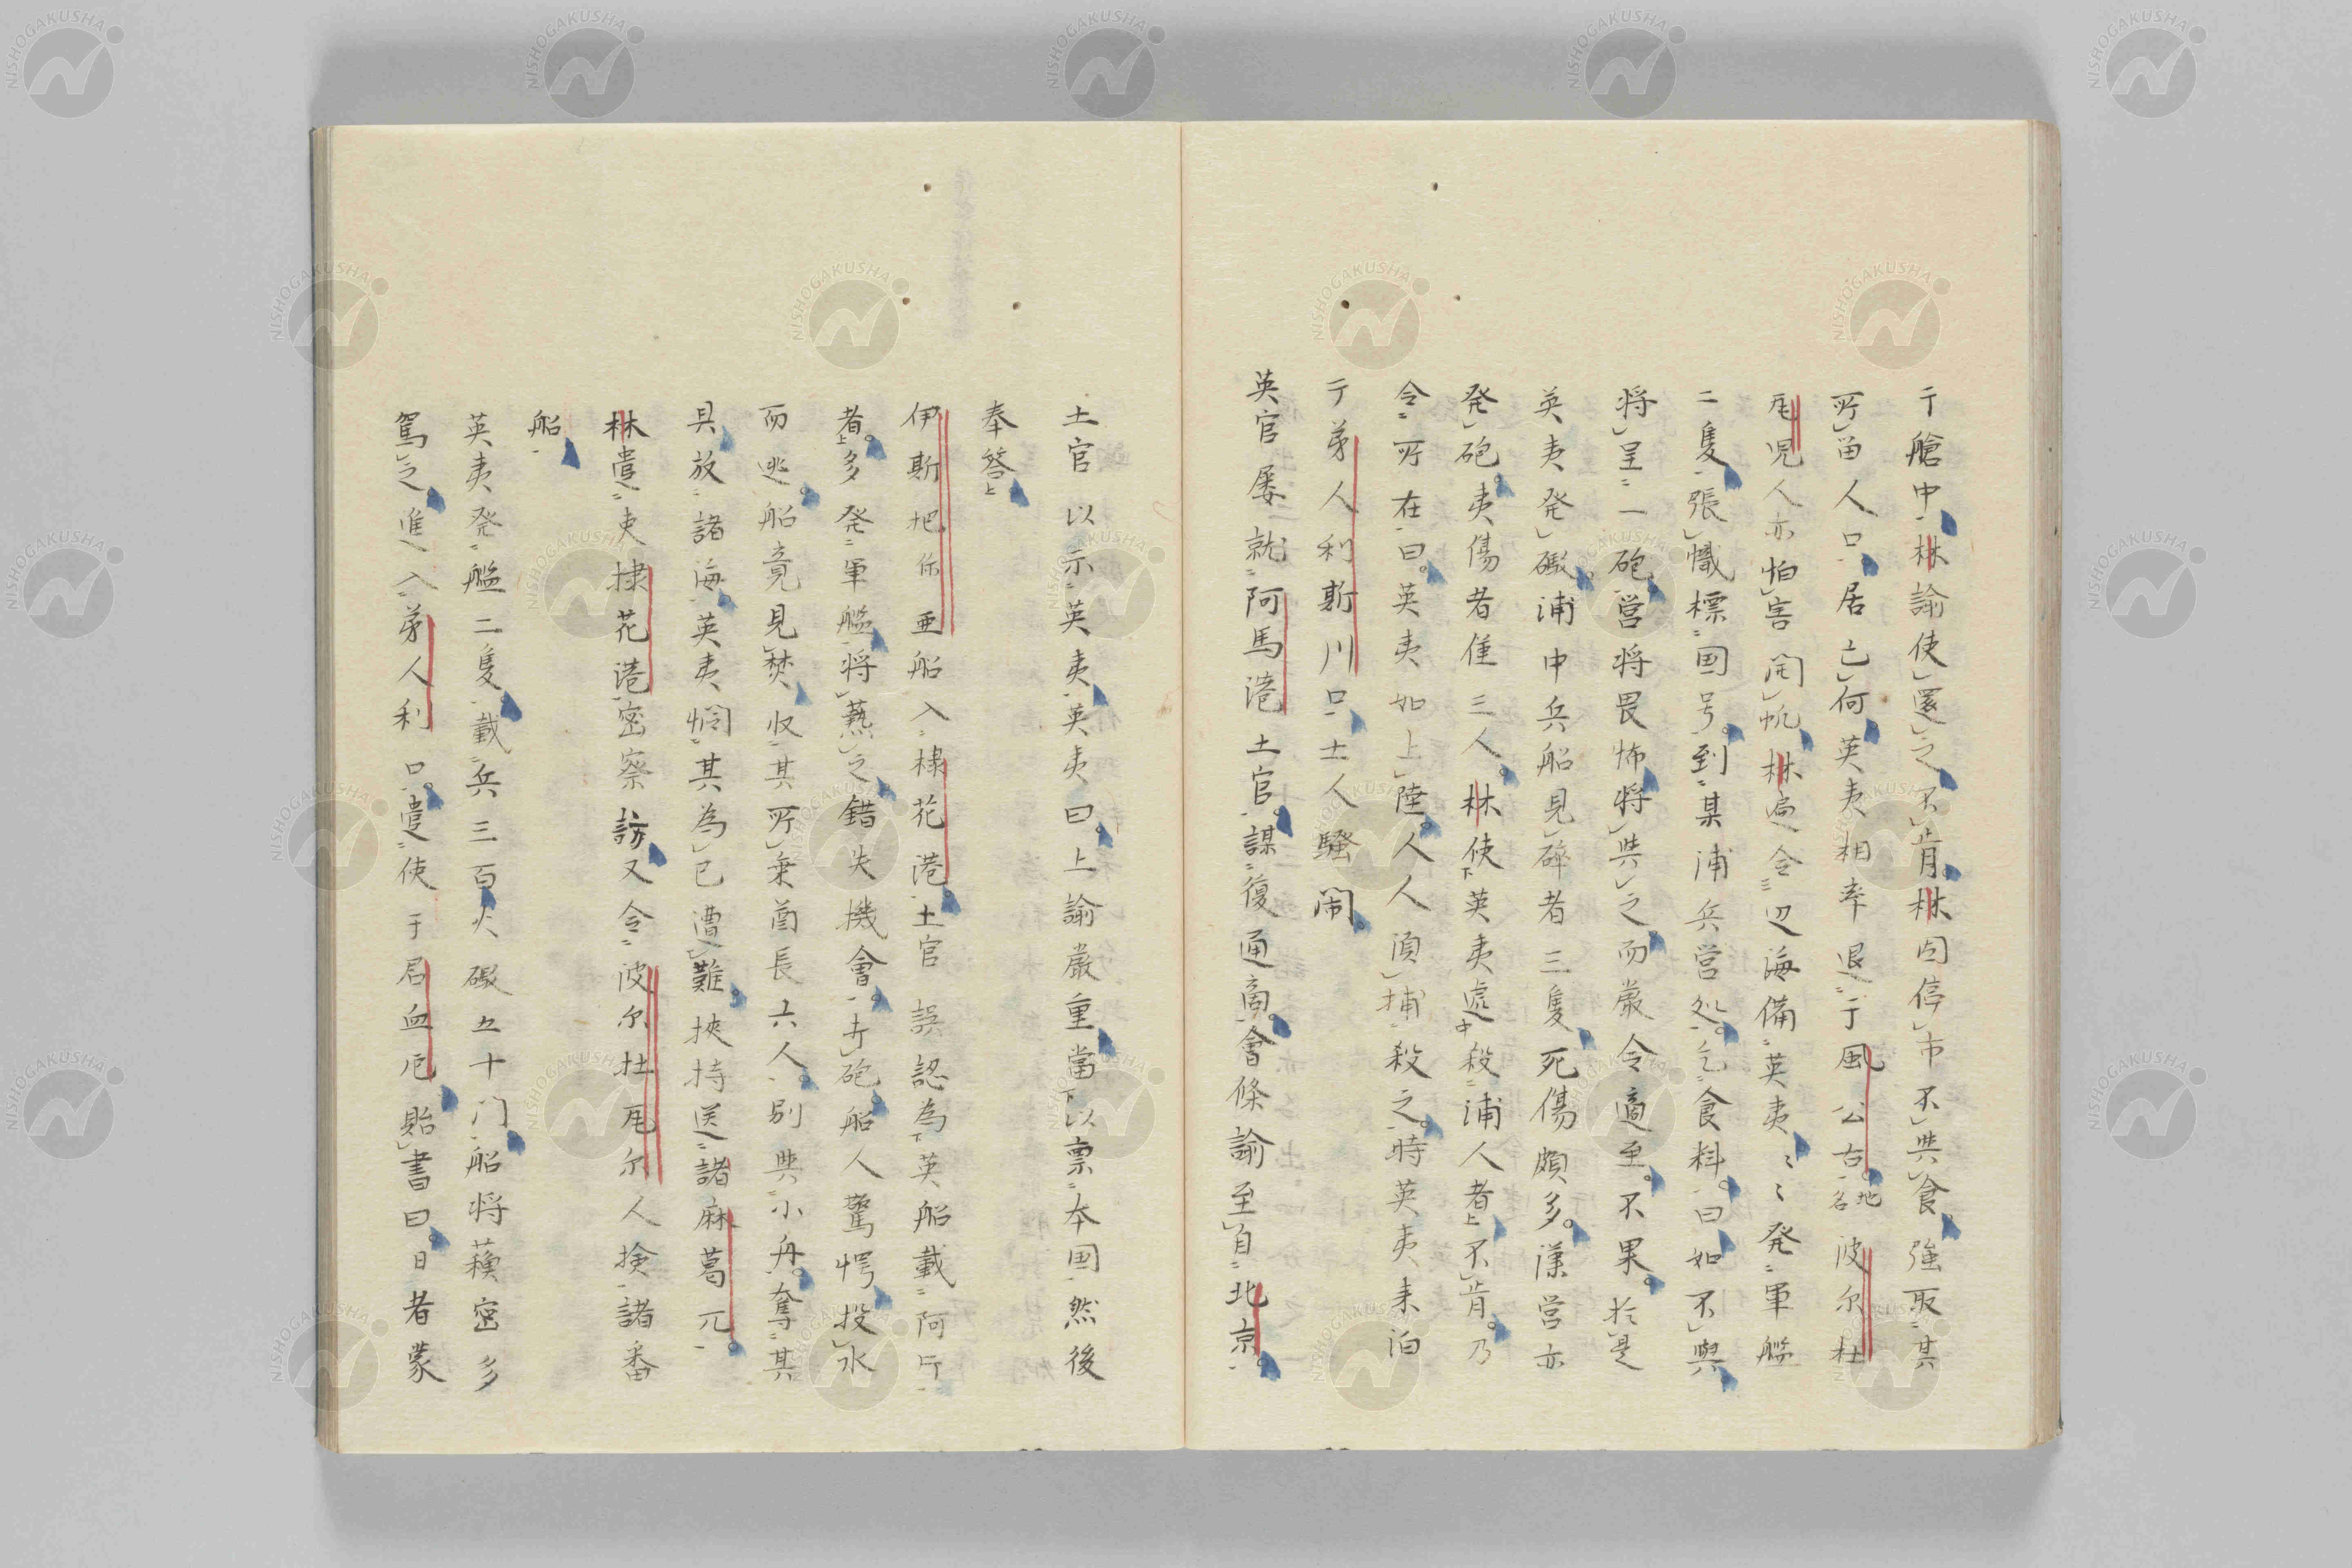 于艙中林諭使還之不肯林因停市不與食強取其
所留人口居亡何英夷相率退于風公古地名波尓杜
厇児人亦怕害開帆林遍令辺海備英夷々々発軍艦
二隻張幟標国号到某浦兵営処乞食料曰如不與
将呈一砲営将畏怖将與之而厳令適至不果於是
英夷発礮浦中兵船見碎者三隻死傷頗多漢営亦
発砲夷傷者僅三人林使下英夷處中殺浦人者上不肯乃
令所在曰英夷如上陸人人須捕殺之時英夷来泊
于弟人利斯川口土人騒閙
英官屡就阿馬港土官謀復通商會條諭至自北京
土官以示英夷英夷曰上諭厳重當下以稟本国然後
奉答上
伊斯把你亜船入棣花港土官誤認為下英船載阿片
者上多発軍艦将爇之錯失機會卉砲船人驚愕投水
而逃船竟見焚収其所乗酋長六人別與小舟奪其
具放諸海英夷憫其為已遭難挟持送諸麻葛亢
林遣吏棣花港密察訪又令波尓杜厇尓人捡諸番
船
英夷発艦二隻載兵三百火礮五十门船将蘓密多
駕之進入弟人利口遣使于局血厄貽書曰日者蒙
NISHOGAKUSHA